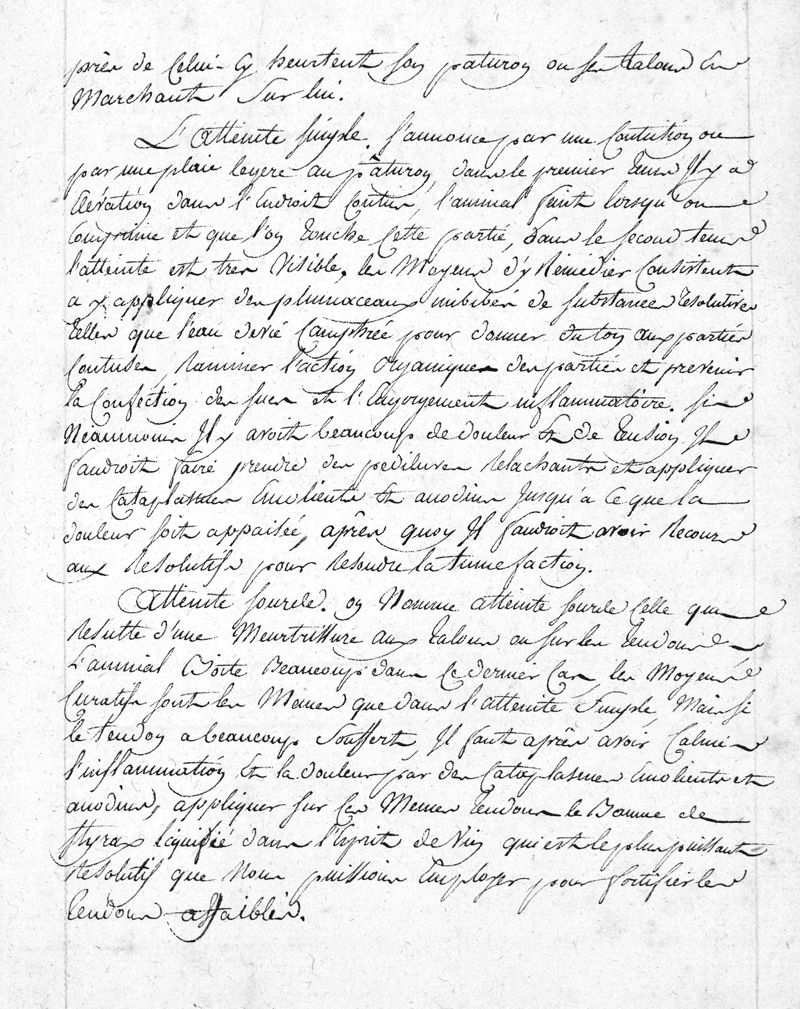 près de Celui-Cy heurtent son paturon ou ses talons En
Marchant Sur lui.
L'Atteinte Simple. S'annonce par une Contution ou
par une plaie legere au pâturon, dans le premier tems Il y a
dans l'Endroit Contus, l'animal faint lorsqu'on
Comprime et que l'on touche Cette partie, Dans le second tems
l'atteinte est tres Visible. les Moyens d'y Remedier Consistent
a y appliquer des plumaceaux imbibés de substances resolutives
telles que l'eau de vié Camphrée pour donner du ton aux parties
Contuses Ranimer l'action Organique des parties et prevenir
la Confection des sucs et l'Engorgement inflammatoire. Si
Néanmoins Il y avoit beaucoup de douleur et de tension Il
faudroit faire prendre des pediluves relachants et appliquer
des Cataplasmes Emolients et anodins Jusqu'a ce que la
douleur soit appaisée, après quoy Il faudroit avoir Recours
aux Resolutifs pour resoudre la tumefaction.
Atteinte sourde. on Nomme atteinte sourde Celle qui
resulte d'une Meurtrissure aux talons ou sur les tendons
L'animal Boite Beaucoup dans Ce dernier Cas, les Moyens
Curatifs sont les Memes que dans l'atteinte Simple, Mais si
le tendon a beaucoup Souffert, Il faut après avoir Calmé
l'inflammation et la douleur par des Cataplasmes Emolients et
anodins, appliquer sur Ces Memes tendons le Bâume de
styrax liquifié dans l'Esprit de Vin qui est le plus puissant
resolutif que Nous puissions Employer pour fortifier les
tendons affaiblis.